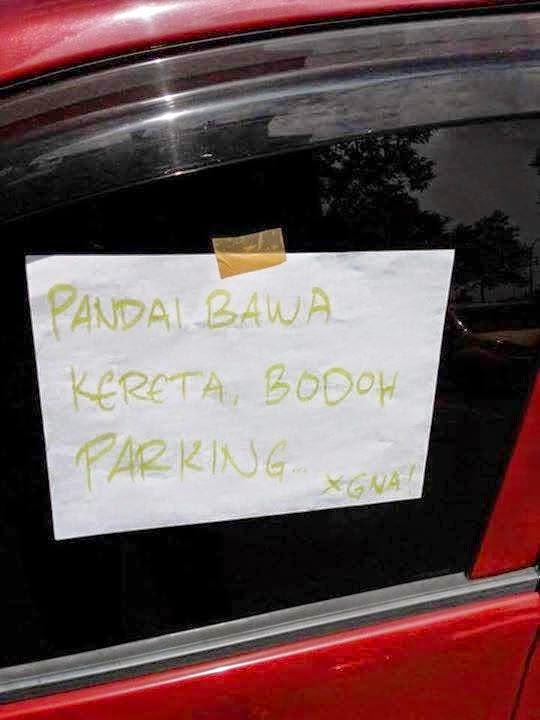 PANDAI BAWA
KERETA, BODOH
PARKING...
XGNA!